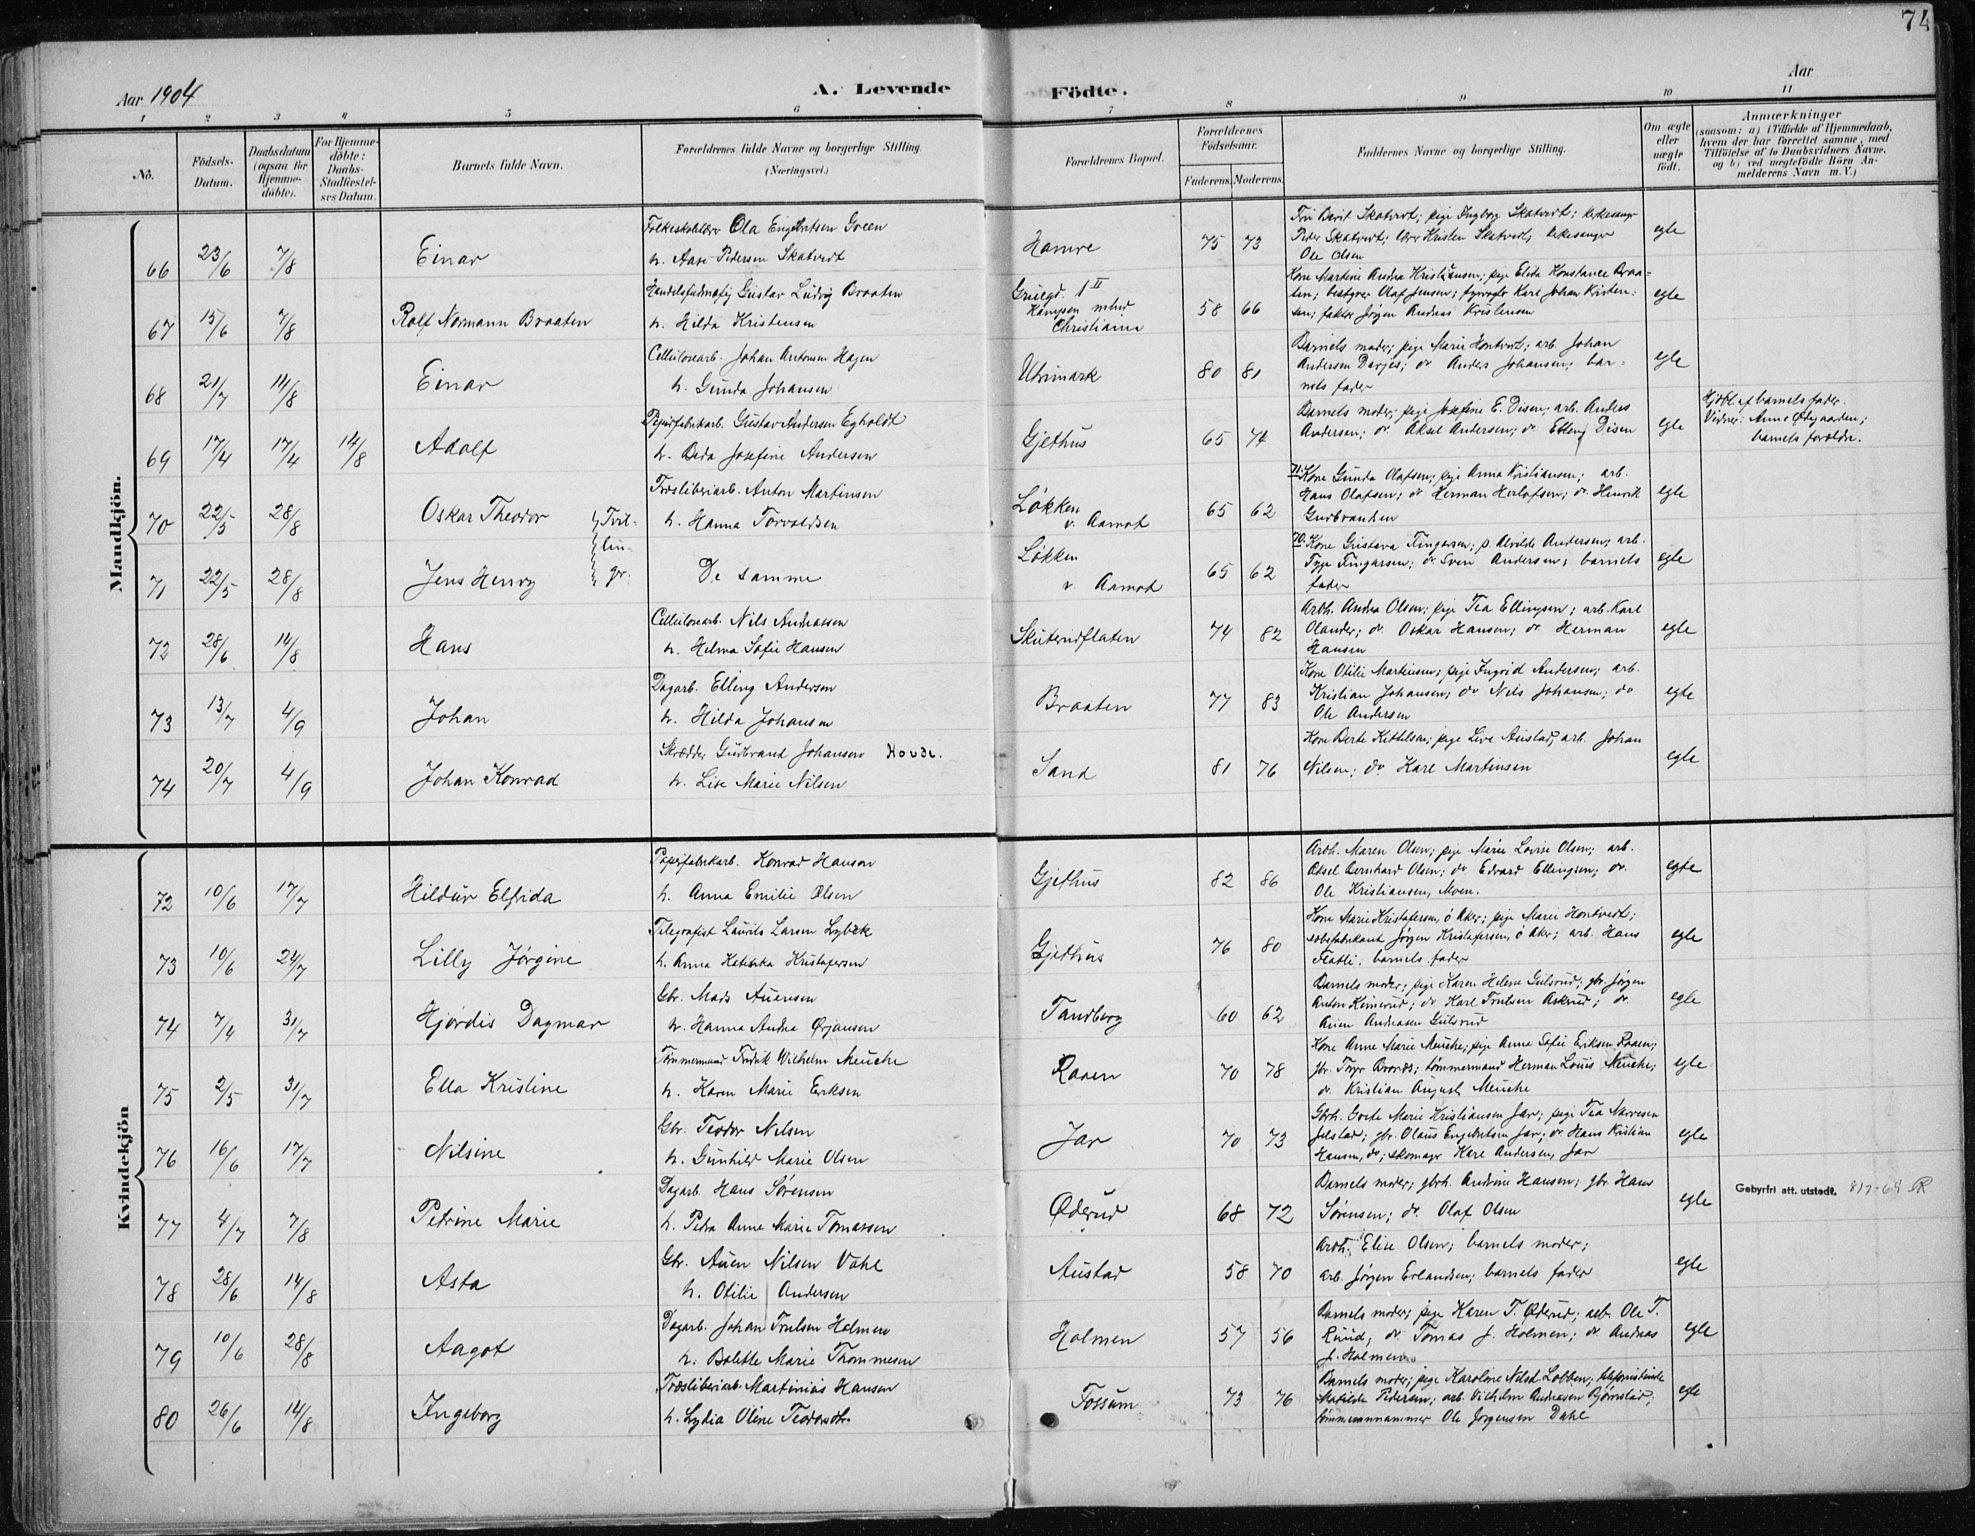 74
Aar 1904
A. Levende
Födte.
Aar
1 2 3 4 5 6 7 8 9 10 11
No.
Födsels-
Datum.
Daabsdatum
(ogsaa for
Hjemme-
döbte).
For Hjemme-
döbte:
Daabs-
Stadfæstel-
ses Datum.
Barnets fulde Navn.
Forældrenes fulde Navne og borgerlige Stilling.
(Næringsvei.)
Forældrenes Bopæl.
Forældrenes
Födselsaar.
Faderens. Moderens.
Faddernes Navne og borgerlige Stilling.
Om ægte
eller
uægte
født.
Anmærkninger
(saasom: a) i Tilfælde af Hjemmedaab,
hvem der har forrettet samme, med
Tilföielse af to Daabsvidners Navne,
og b) ved uægtefödte Börn An-
melderens Navn m. V.)
Mandkjön.
66 23/6 7/8 Einar
Folkeskolelærer Ola Engebretsen Green
h. Aase Pedersen Skatvedt
Hamre 75 73
Fru Berit Skatvedt; pige Ingborg Skatvedt; kirkesanger
Peder Skatvedt; lærer Kristen Skatvedt; kirkesanger
Ole Olsen
egte
67 15/6 7/8 Rolf Normann Braaten
Handelsfuldmægtig Gustav Ludvig Braaten
h. Hilda Kristensen
Christiania 58 66
Kone Martine Andrea Kristiansen; pige Elida Konstance Braa=
ten; bestyrer Olaf Jensen; Karl Johan Kristen:
sen; faktor Jørgen Andreas Kristensen
egte
68 21/7 14/8 Einar
Cellulosearb. Johan Antonsen Hagen
h. Gunda Johansen
Utrimark 80 81
Barnets moder; pige Marie Hontvedt; arb. Johan
Andersen; do Anders Johansen; bar=
nets fader
egte
69 17/4 17/4 14/8 Adolf
Papirfabrikarb. Gustav Andersen Egholdt
h. Beda Josefine Andersen
Gjethus 65 74
Barnets moder; pige Josefine E. Disen; arb. Anders
Andersen; do. Aksel Andersen; do. Elling Disen
egte
Hjdbt. af barnets fader.
Vidner: Anne Ødegaarden;
barnets foreldre.
70 22/5 28/8 Oskar Theodor Tvil-
Træsliberiarb. Anton Martinsen
h. Hanna Torvaldsen
Løkken
v. Aamot 65 62
71: Kone Gunda Olafsen; pige Anna Kristiansen; arb.
Hans Olafsen; do Herman Herlofsen; do. Henrik
Gudbrandsen
egte
71 22/5 28/8 Jens Henry lin-
ger.
De samme
Løkken
v. Aamot 65 62
70: Kone Gustava Fingarsen; p. Alvilde Andersen; arb.
Fingarsen; do. Sven Andersen; barnets
fader
egte
72 28/6 14/8 Hans
Cellulosearb. Nils Andreassen
h. Helma Sofie Hansen
Skuterudflaten 74 82
Arbh. Andrea Olsen; pige Tea Ellingsen; arb. Karl
Olander; do. Oskar Hansen; do. Herman
Hansen
egte
73 13/7 4/9 Johan
Dagarb. Elling Andersen
h. Hilda Johansen
Braaten 77 83
Kone Otilie Martinsen; pige Ingrid Andersen; arb.
Kristian Johansen; do Nils Johansen; do
Ole Andersen
egte
74 20/7 4/9 Johan Konrad
Skrædder Gudbrand Johansen Hovde.
h. Lise Marie Nilsen
Sand 81 76
Kone Berte Kittilsen; pige Live Austad; arb. Johan
Nilsen; do Karl Martinsen
egte
Kvindekjön
72 10/6 17/7 Hildur Elfrida
Papirfabrikarb. Konrad Hansen
h. Anna Emilie Olsen
Gjethus 82 86
Arbh. Maren Olsen; pige Marie Lovise Olsen; arb.
Aksel Bernhard Olsen; do Edvard Ellingsen; do.
Ole Kristiansen, Moen.
egte
73 10/6 24/7 Lilly Jørgine
Telegrafist Laurits Larsen Lybæk
h. Anna Kristofersen
Gjethus 76 80
Kone Marie Kristofersen, ö Aker; pige Marie Hontvedt;
Jørgen Kristofersen, ö Aker; arb. Hans
Flatli; barnets fader
egte
74 7/4 31/7 Hjørdis Dagmar
Gbr. Mads Auensen
h. Hanna Andrea Ørjansen
Tandberg 60 62
Barnets moder; pige Karen Helene Gulsrud; gbr. Jørgen
Anton Kimerud; do Karl Trulsen Askrud; do.
Auen Andresen Gulsrud
egte
75 2/5 31/7 Ella Kristine
Tømmermand Fredrik Wilhelm Meuche
h. Karen Marie Eriksen
Raaen 70 78
Kone Anne Marie Meuche; pige Anna Sofie Eriksen Raaen;
gbr. tømmermand Herman Louis Meuche;
do. Kristian August Meuche
egte
76 16/6 17/7 Nilsine
Gbr. Teodor Nilsen
h. Gunhild Marie Olsen
Jar 70 73
Gbrh. Grete Marie Kristiansen Jar; pige Tea Narvesen
Jelstad; gbr. Olaus Engebretsen Jar; do Hans Kristian
Hansen, do; skomager Kare Andersen, Jar
egte
77 4/7 7/8 Petrine Marie
Dagarb. Hans Sørensen
h. Petra Anne Marie Tomassen
Øderud 68 72
Barnets moder; gbrh. Andrine Hansen; gbr. Hans
Sørensen; do. Olaf Olsen
egte
Gebyrfri att. utstedt. 8/7-64
78 28/6 14/8 Asta
Gbr. Auen Nilsen Vahl
h. Otilie Andersen
Austad 58 70
Arbh. Elise Olsen; barnets moder;
arb. Jørgen Erlandsen; barnets fader
egte
79 10/6 28/8 Aagot
Dagarb. Johan Trulsen Holmen
h. Bolette Marie Thommesen
Holmen 57 56
Barnets moder; pige Karen T. Øderud; arb. Ole T.
Ruud; do Tomas J. Holmen; do Andreas
J. Holmen
egte
80 26/6 14/8 Ingeborg
Træsliberiarb. Martinius Hansen
h. Lydia Oline Teodorsdtr.
Fossum 73 76
Barnets moder; pige Karoline Nilsd. Lobben; telefonistinde
Matilde Pedersen; arb. Vilhelm Andresen Bjørnstad;
tømmermand Ole Jørgensen Dahl
egte